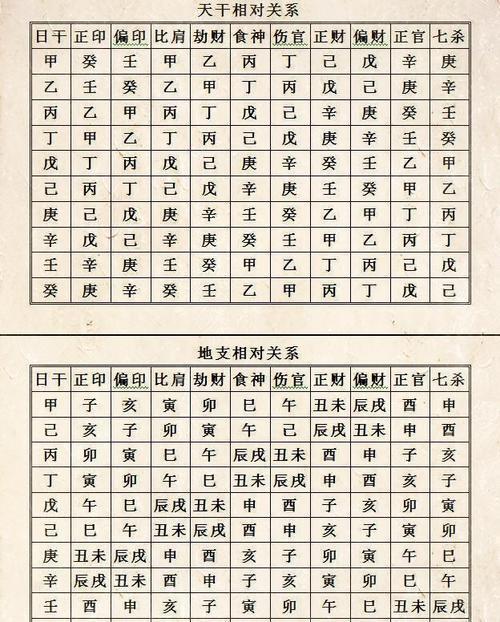 天干相对关系
日干 正印 偏印 比肩 劫财 食神 伤官 正财 偏财 正官 七杀
甲 癸 壬 甲 乙 丙 丁 己 戊 辛 庚
乙 壬 癸 乙 甲 丁 丙 戊 己 庚 辛
丙 乙 甲 丙 丁 戊 己 辛 庚 癸 壬
丁 甲 乙 丁 丙 己 戊 庚 辛 壬 癸
戊 丁 丙 戊 己 庚 辛 癸 壬 乙 甲
己 丙 丁 己 戊 辛 庚 壬 癸 甲 乙
庚 己 戊 庚 辛 壬 癸 乙 甲 丁 丙
辛 戊 己 辛 庚 癸 壬 甲 乙 丙 丁
壬 辛 庚 壬 癸 甲 乙 丁 丙 己 戊
癸 庚 辛 癸 壬 乙 甲 丙 丁 戊 己
地支相对关系
日干 正印 偏印 比肩 劫财 食神 伤官 正财 偏财 正官 七杀
甲 子 亥 寅 卯 巳 午 丑未 辰戌 酉 申
己 亥 子 卯 寅 午 己 辰戌 丑未 申 酉
丙 卯 寅 巳 午 辰戌 丑未 酉 申 子 亥
丁 寅 卯 午 巳 丑未 辰戌 申 酉 亥 子
戊 午 巳 辰戌 丑未 申 酉 子 亥 卯 寅
己 巳 午 丑未 辰戌 酉 申 亥 子 寅 卯
庚 丑未 辰戌 申 酉 亥 子 卯 寅 午 巳
辛 辰戌 丑未 酉 申 子 亥 寅 卯 巳 午
壬 酉 申 亥 子 寅 卯 午 巳 丑未 辰戌